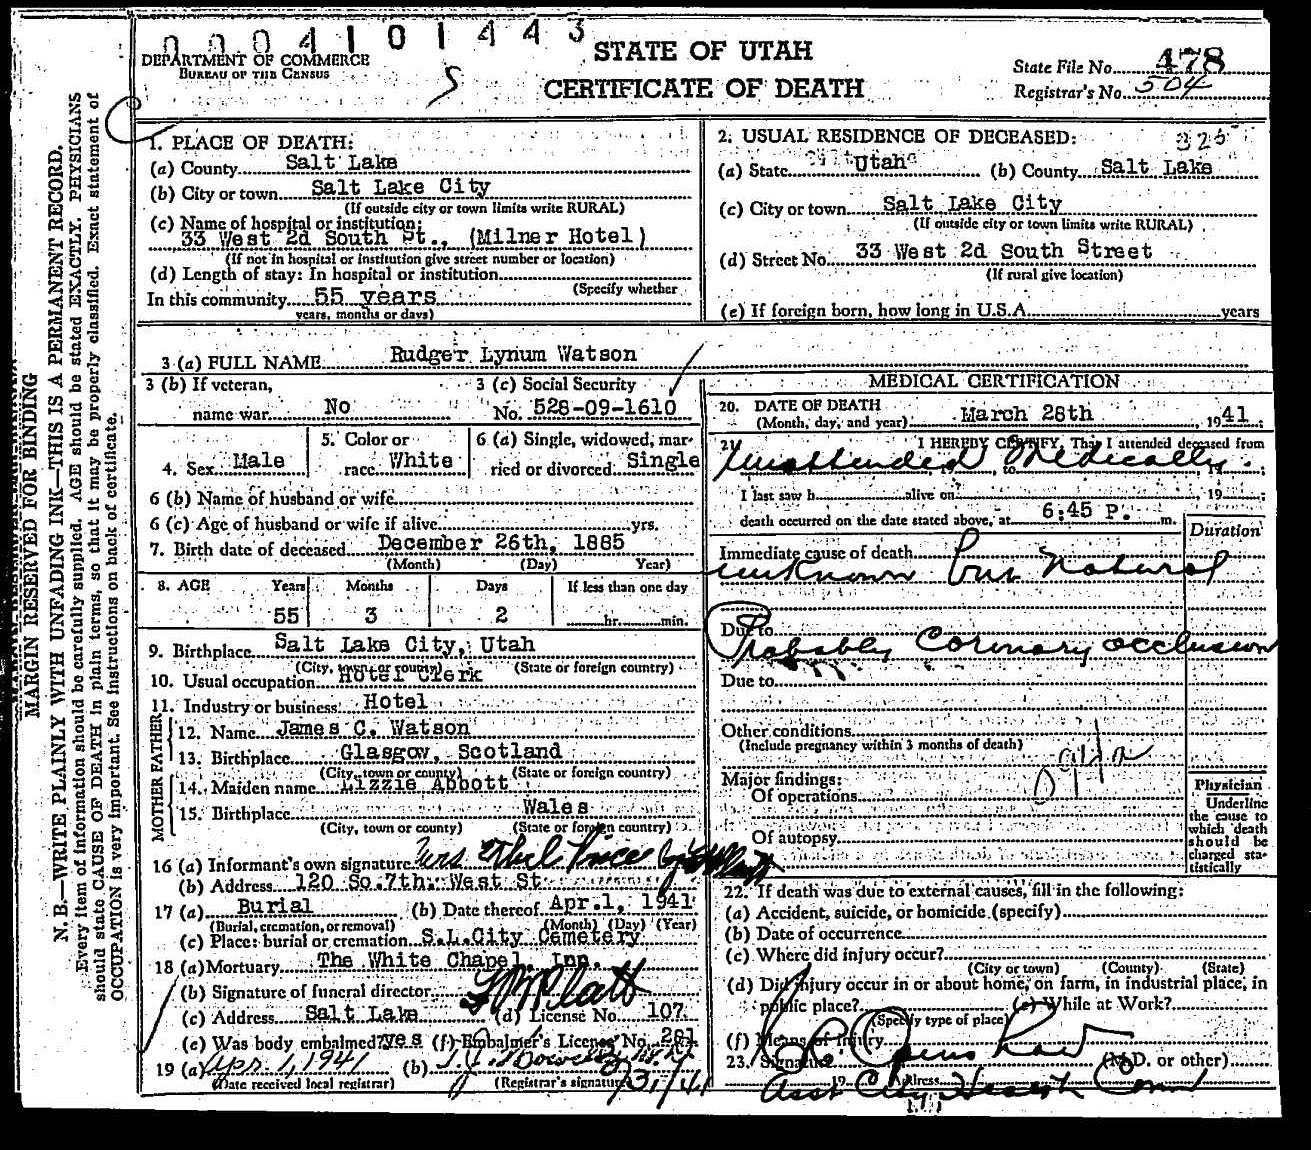 0004101443
DEPARTMENT OF COMMERCE
BUREAU OF THE CENSUS
STATE OF UTAH
CERTIFICATE OF DEATH
State File No. 478
Registrar's No. 504
MARGIN RESERVED FOR BINDING
N. B.—WRITE PLAINLY WITH UNFADING INK—THIS IS A PERMANENT RECORD.
Every item of information should be carefully supplied. AGE should be stated EXACTLY. PHYSICIANS
should state CAUSE OF DEATH in plain terms, so that it may be properly classified. Exact statement of
OCCUPATION is very important. See instructions on back of certificate.
1. PLACE OF DEATH:
(a) County Salt Lake
(b) City or town Salt Lake City
(If outside city or town limits write RURAL)
(c) Name of hospital or institution:
33 West 2d South St., (Milner Hotel)
(If not in hospital or institution give street number or location)
(d) Length of stay: In hospital or institution
(Specify whether
In this community 55 years
years, months or days)
2. USUAL RESIDENCE OF DECEASED:
325
(a) State Utah (b) County Salt Lake
(c) City or town Salt Lake City
(If outside city or town limits write RURAL)
(d) Street No. 33 West 2d South Street
(If rural give location)
(e) If foreign born, how long in U.S.A. years
3 (a) FULL NAME Rudger Lynum Watson
3 (b) If veteran,
name war No
3 (c) Social Security
No. 528-09-1610
4. Sex Male
5. Color or
race White
6 (a) Single, widowed, mar-
ried or divorced Single
6 (b) Name of husband or wife
6 (c) Age of husband or wife if alive yrs.
7. Birth date of deceased December 26th, 1885
(Month) (Day) Year)
8. AGE Years Months Days If less than one day
55 3 2 hr. min.
9. Birthplace Salt Lake City, Utah
(City, town or county) (State or foreign country)
10. Usual occupation Hotel Clerk
11. Industry or business Hotel
FATHER
12. Name James C. Watson
13. Birthplace Glasgow, Scotland
(City, town or county) (State or foreign country)
MOTHER
14. Maiden name Lizzie Abbott
15. Birthplace Wales
(City, town or county) (State or foreign country)
16 (a) Informant's own signature Mrs Ethel Price
(b) Address 120 So. 7th. West St
17 (a) Burial (b) Date thereof Apr.1, 1941
(Burial, cremation, or removal) (Month) (Day) (Year)
(c) Place: burial or cremation S.L.City Cemetery
18 (a) Mortuary The White Chapel, Inc.
(b) Signature of funeral director Platt
(c) Address Salt Lake (d) License No. 107
(e) Was body embalmed? yes (f) Embalmer's License No. 281
19 (a) Apr. 1, 1941 (b)
(Date received local registrar) (Registrar's signature)
MEDICAL CERTIFICATION
20. DATE OF DEATH
(Month, day, and year) March 28th 1941
21. I HEREBY CERTIFY, That I attended deceased from
Unattended Medically.
I last saw h alive on , 19 ;
death occurred on the date stated above, at 6:45 P. m.
Duration
Immediate cause of death
unknown but Natural
Due to
Probably Coronary occlusion
Due to
Other conditions
(Include pregnancy within 3 months of death)
Major findings:
Of operations
Of autopsy
Physician
Underline
the cause to
which death
should be
charged sta-
tistically
22. If death was due to external causes, fill in the following:
(a) Accident, suicide, or homicide (specify)
(b) Date of occurrence
(c) Where did injury occur?
(City or town) (County) (State)
(d) Did injury occur in or about home, on farm, in industrial place, in
public place? (e) While at Work?
(Specify type of place)
(f) Means of injury
23. Signature (M.D. or other)
Address
Asst City Health Comm